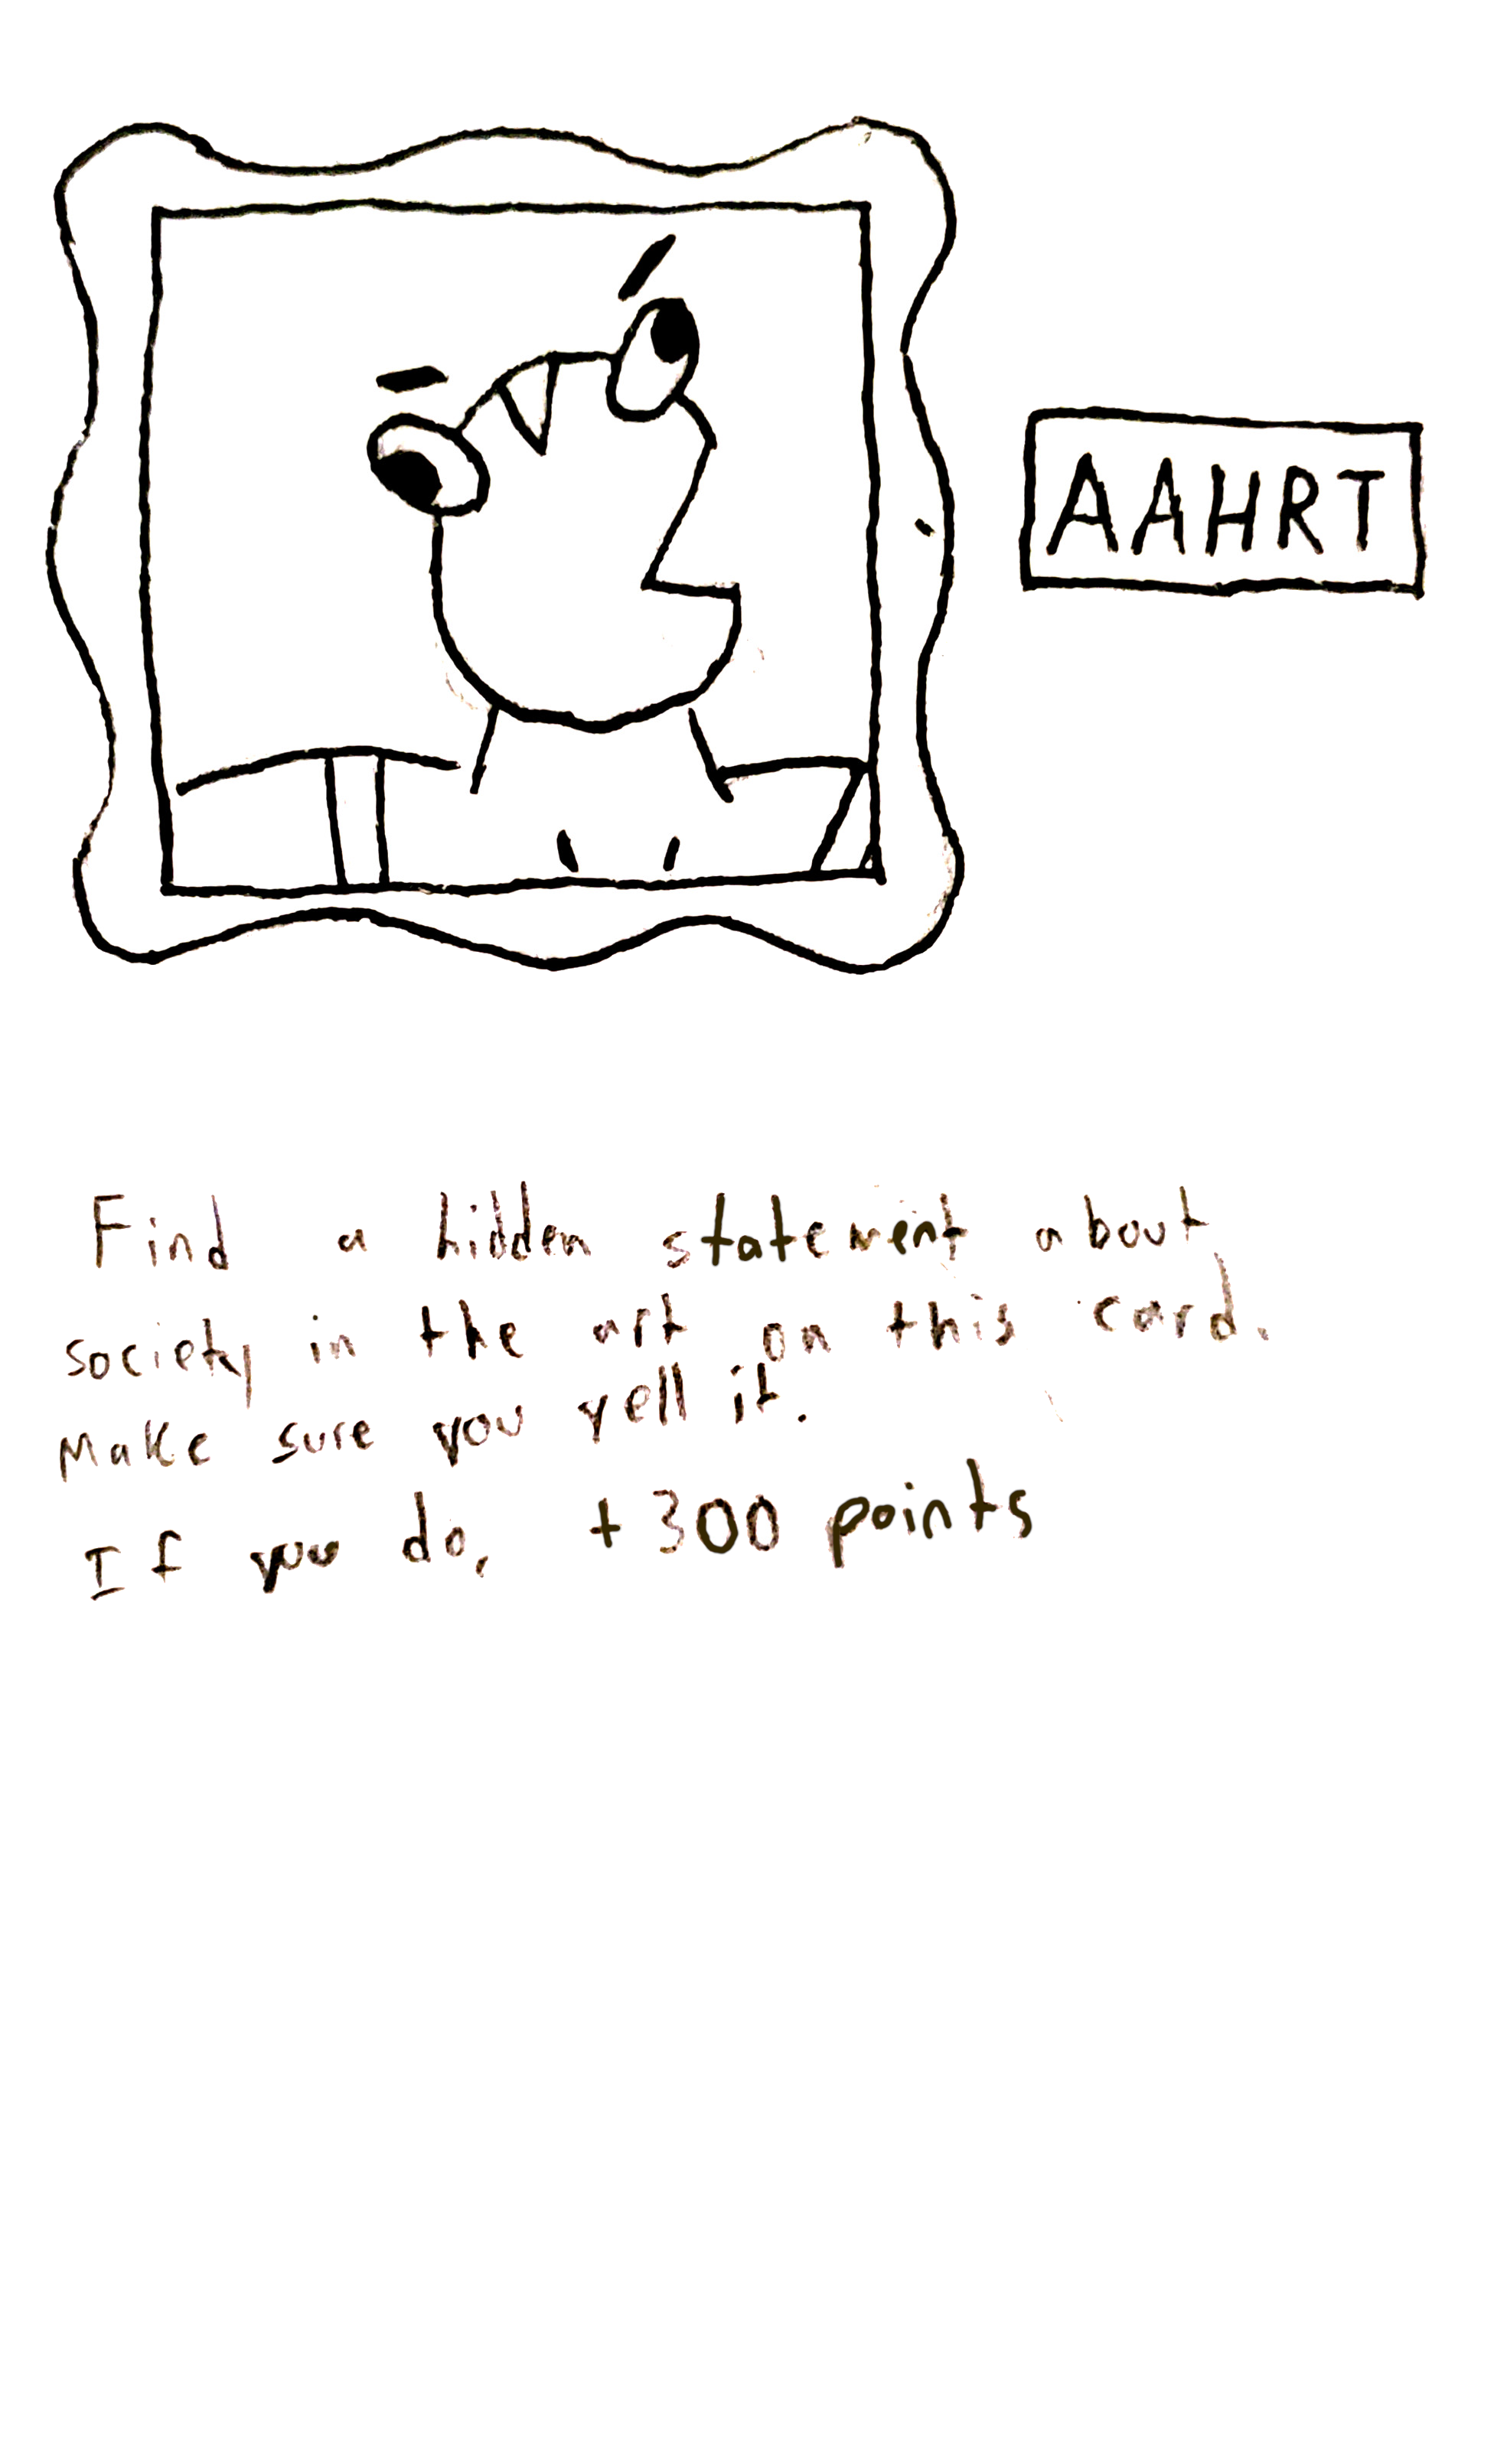 AAHRT
Find a hidden statement about
society in the art on this card.
Make sure you yell it.
If you do, +300 points